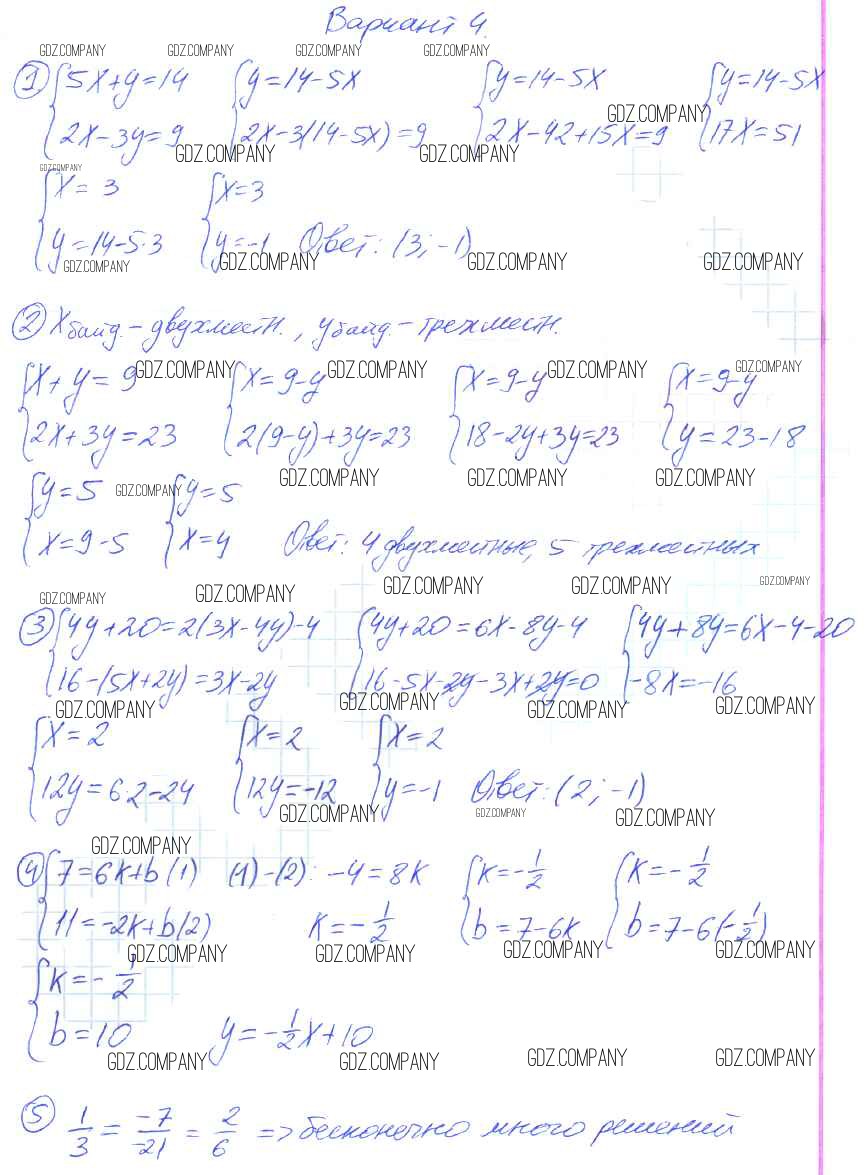 Вариант 4.
GDZ.COMPANY GDZ.COMPANY GDZ.COMPANY GDZ.COMPANY
① {5x+y=14 {y=14-5x {y=14-5x {y=14-5x
2x-3y=9 2x-3(14-5x)=9 2x-42+15x=9 17x=51
GDZ.COMPANY GDZ.COMPANY GDZ.COMPANY
GDZ.COMPANY
{x=3 {x=3
y=14-5·3 y=-1 Ответ: (3; -1)
GDZ.COMPANY GDZ.COMPANY GDZ.COMPANY GDZ.COMPANY
② x байд. - двухместн., y байд. - трехместн.
{x+y=9 {x=9-y {x=9-y {x=9-y
GDZ.COMPANY GDZ.COMPANY GDZ.COMPANY GDZ.COMPANY
2x+3y=23 2(9-y)+3y=23 18-2y+3y=23 y=23-18
GDZ.COMPANY GDZ.COMPANY GDZ.COMPANY
{y=5 GDZ.COMPANY {y=5
x=9-5 x=4 Ответ: 4 двухместные, 5 трехместных
GDZ.COMPANY GDZ.COMPANY GDZ.COMPANY GDZ.COMPANY GDZ.COMPANY
③ {4y+20=2(3x-4y)-4 {4y+20=6x-8y-4 {4y+8y=6x-4-20
16-(5x+2y)=3x-2y 16-5x-2y-3x+2y=0 -8x=-16
GDZ.COMPANY GDZ.COMPANY GDZ.COMPANY GDZ.COMPANY
{x=2 {x=2 {x=2
12y=6·2-24 12y=-12 y=-1 Ответ: (2; -1)
GDZ.COMPANY GDZ.COMPANY GDZ.COMPANY
GDZ.COMPANY
④ {7=6k+b (1) (1)-(2): -4=8k {k=-1/2 {k=-1/2
11=-2k+b (2) k=-1/2 b=7-6k b=7-6(-1/2)
GDZ.COMPANY GDZ.COMPANY GDZ.COMPANY GDZ.COMPANY
{k=-1/2
b=10 y=-1/2x+10
GDZ.COMPANY GDZ.COMPANY GDZ.COMPANY GDZ.COMPANY
⑤ 1/3 = -7/-21 = 2/6 => бесконечно много решений